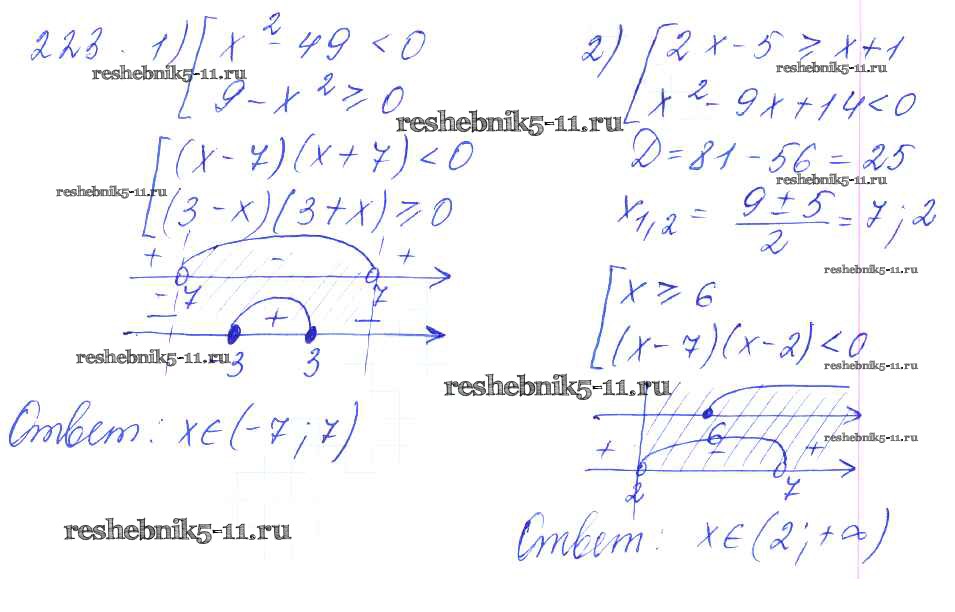 223. 1) [ x² - 49 < 0
reshebnik5-11.ru
9 - x² ≥ 0
[ (x - 7)(x + 7) < 0
reshebnik5-11.ru
(3 - x)(3 + x) ≥ 0
+ - +
-7 7
- + -
-3 3
reshebnik5-11.ru
Ответ: x∈(-7; 7)
reshebnik5-11.ru
2) [ 2x - 5 ≥ x + 1
reshebnik5-11.ru
x² - 9x + 14 < 0
reshebnik5-11.ru
D = 81 - 56 = 25
reshebnik5-11.ru
x₁,₂ = (9 ± 5)/2 = 7; 2
reshebnik5-11.ru
[ x ≥ 6
(x - 7)(x - 2) < 0
reshebnik5-11.ru
reshebnik5-11.ru
6
reshebnik5-11.ru
+ - +
2 7
Ответ: x∈(2; +∞)